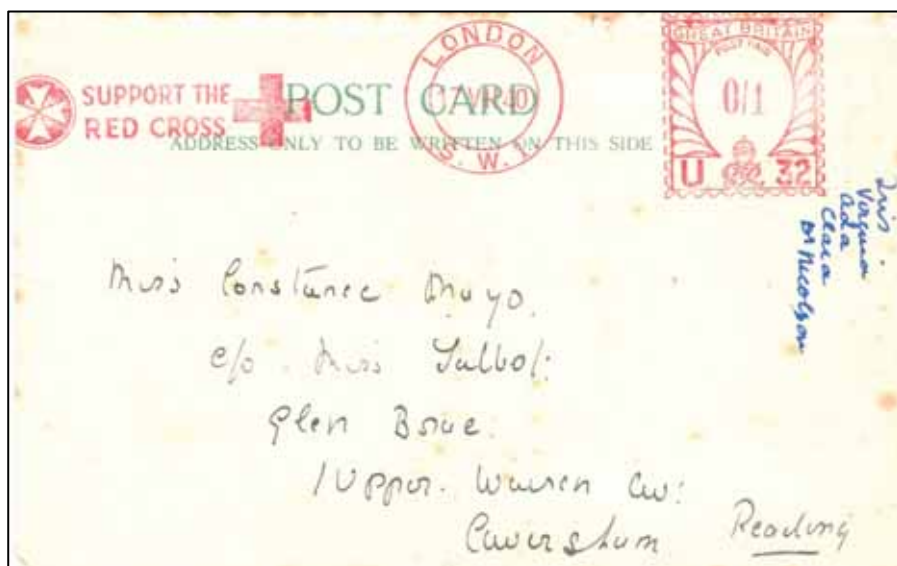 SUPPORT THE
RED CROSS
POST CARD
ADDRESS ONLY TO BE WRITTEN ON THIS SIDE
LONDON
VII 40
S.W.1.
GREAT BRITAIN
POSTAGE
0/1
U 32
Iris
Virginia
Ada
Clara
Dr Nicolson
Miss Constance Mayo.
c/o. Miss Talbot:
Glen
1 Upper. Warren Av:
Caversham Reading